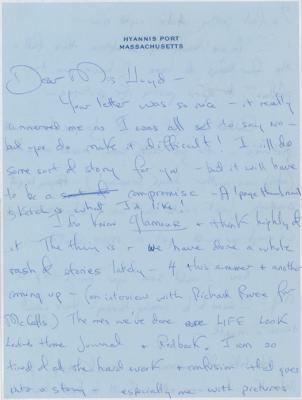 HYANNIS PORT
MASSACHUSETTS
Dear Ms Lloyd —
Your letter was so nice — it really
unnerved me as I was all set to say no —
but you do make it difficult! I will do
some sort of story for you — but it will have
to be a compromise — A 1 page thumbnail
sketch is what I'd like!
I do know Glamour & think highly of
it The thing is — we have done a whole
rash of stories lately — 4 this summer & another
coming up — (an interview with Richard
McCalls) The ones we've done are LIFE LOOK
Ladies Home Journal & Redbook. I am so
tired of all the hard work & confusion that goes
into a story — especially me with pictures